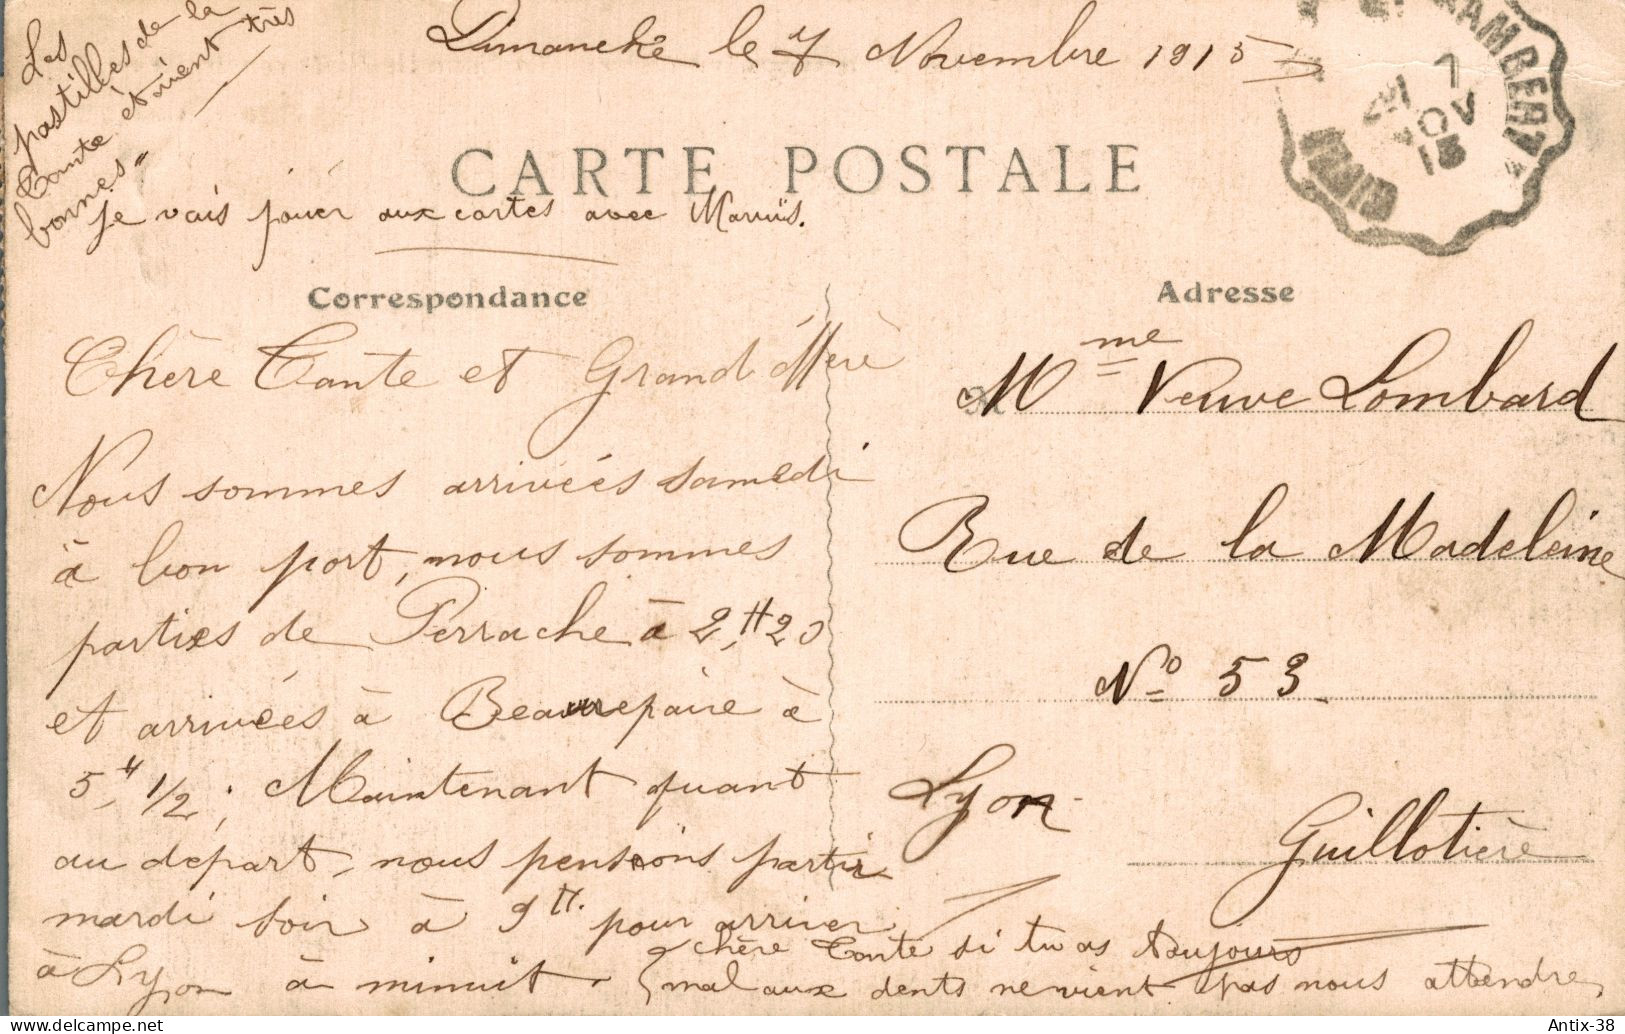 Les
pastilles de la
Tante étaient très
bonnes"
Dimanche le 7 Novembre 1915
RAMBERT
7
NOV
CARTE POSTALE
Je vais jouer aux cartes avec Marius.
Correspondance
Adresse
Chère Tante et Grand Mère
Nous sommes arrivées samedi
à bon port, nous sommes
parties de Perrache à 2H20
et arrivées à Beaurepaire à
5H 1/2; Maintenant quant
au départ, nous pensions partir
mardi soir à 9H. pour arriver
à Lyon à minuit.
chère Tante si tu as toujours
mal aux dents ne vient pas nous attendre
Mme Veuve Lombard
Rue de la Madeleine
No 53
Lyon
Guillotière
Antix-38